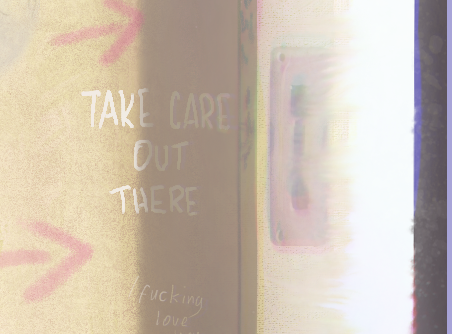 TAKE CARE
OUT
THERE
fucking
love